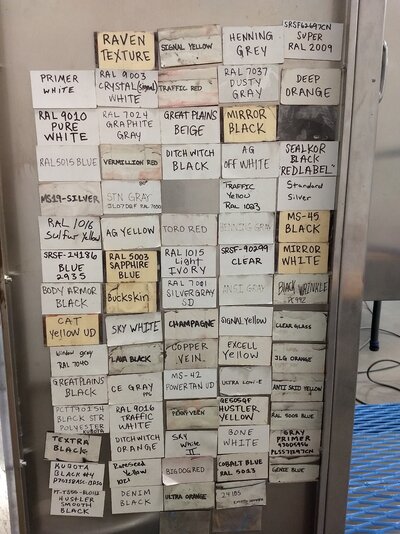 RAVEN
TEXTURE
SIGNAL YELLOW
HENNING
GREY
SUPER
RAL 2009
PRIMER
WHITE
RAL 9003
CRYSTAL (Signal)
WHITE
TRAFFIC RED
RAL 7037
DUSTY
GRAY
DEEP
ORANGE
RAL 9010
PURE
WHITE
RAL 7024
GRAPHITE
GRAY
GREAT PLAINS
BEIGE
MIRROR
BLACK
RAL 5015 BLUE
VERMILLION RED
DITCH WITCH
BLACK
AG
OFF WHITE
SEALKOR
BLACK
"REDLABEL"
MS19-SILVER
STN GRAY
TRAFFIC
Yellow
RAL 1023
Standard
Silver
RAL 1016
Sulfur Yellow
AG YELLOW
TORO RED
HENNING GRAY
MS-45
BLACK
SRSF-24186
BLUE
2935
RAL 5003
SAPPHIRE
BLUE
RAL 1015
Light
IVORY
SRSF-90299
CLEAR
MIRROR
WHITE
BODY ARMOR
BLACK
Buckskin
RAL 7001
SILVER GRAY
SD
ANSI GRAY
BLACK WRINKLE
CAT
Yellow UD
SKY WHITE
CHAMPAGNE
SIGNAL YELLOW
CLEAR GLASS
Window gray
RAL 7040
LAVA BLACK
COPPER
VEIN
EXCELL
Yellow
JLG ORANGE
GREAT PLAINS
BLACK
CE GRAY
MS-42
POWERTAN UD
ULTRA LOW-E
ANTI SKID YELLOW
PCTT90154
BLACK STR
POLYESTER
KUBOTA
RAL 9016
TRAFFIC
WHITE
HUSTLER
YELLOW
RAL 5005 BLUE
TEXTRA
BLACK
DITCH WITCH
ORANGE
SKY
White
II
BONE
WHITE
GRAY
PRIMER
KUBOTA
BLACK #4
Rapeseed
Yellow
BIG DOG RED
COBALT BLUE
RAL 5013
GENIE BLUE
HUSTLER
SMOOTH
BLACK
DENIM
BLACK
ULTRA ORANGE